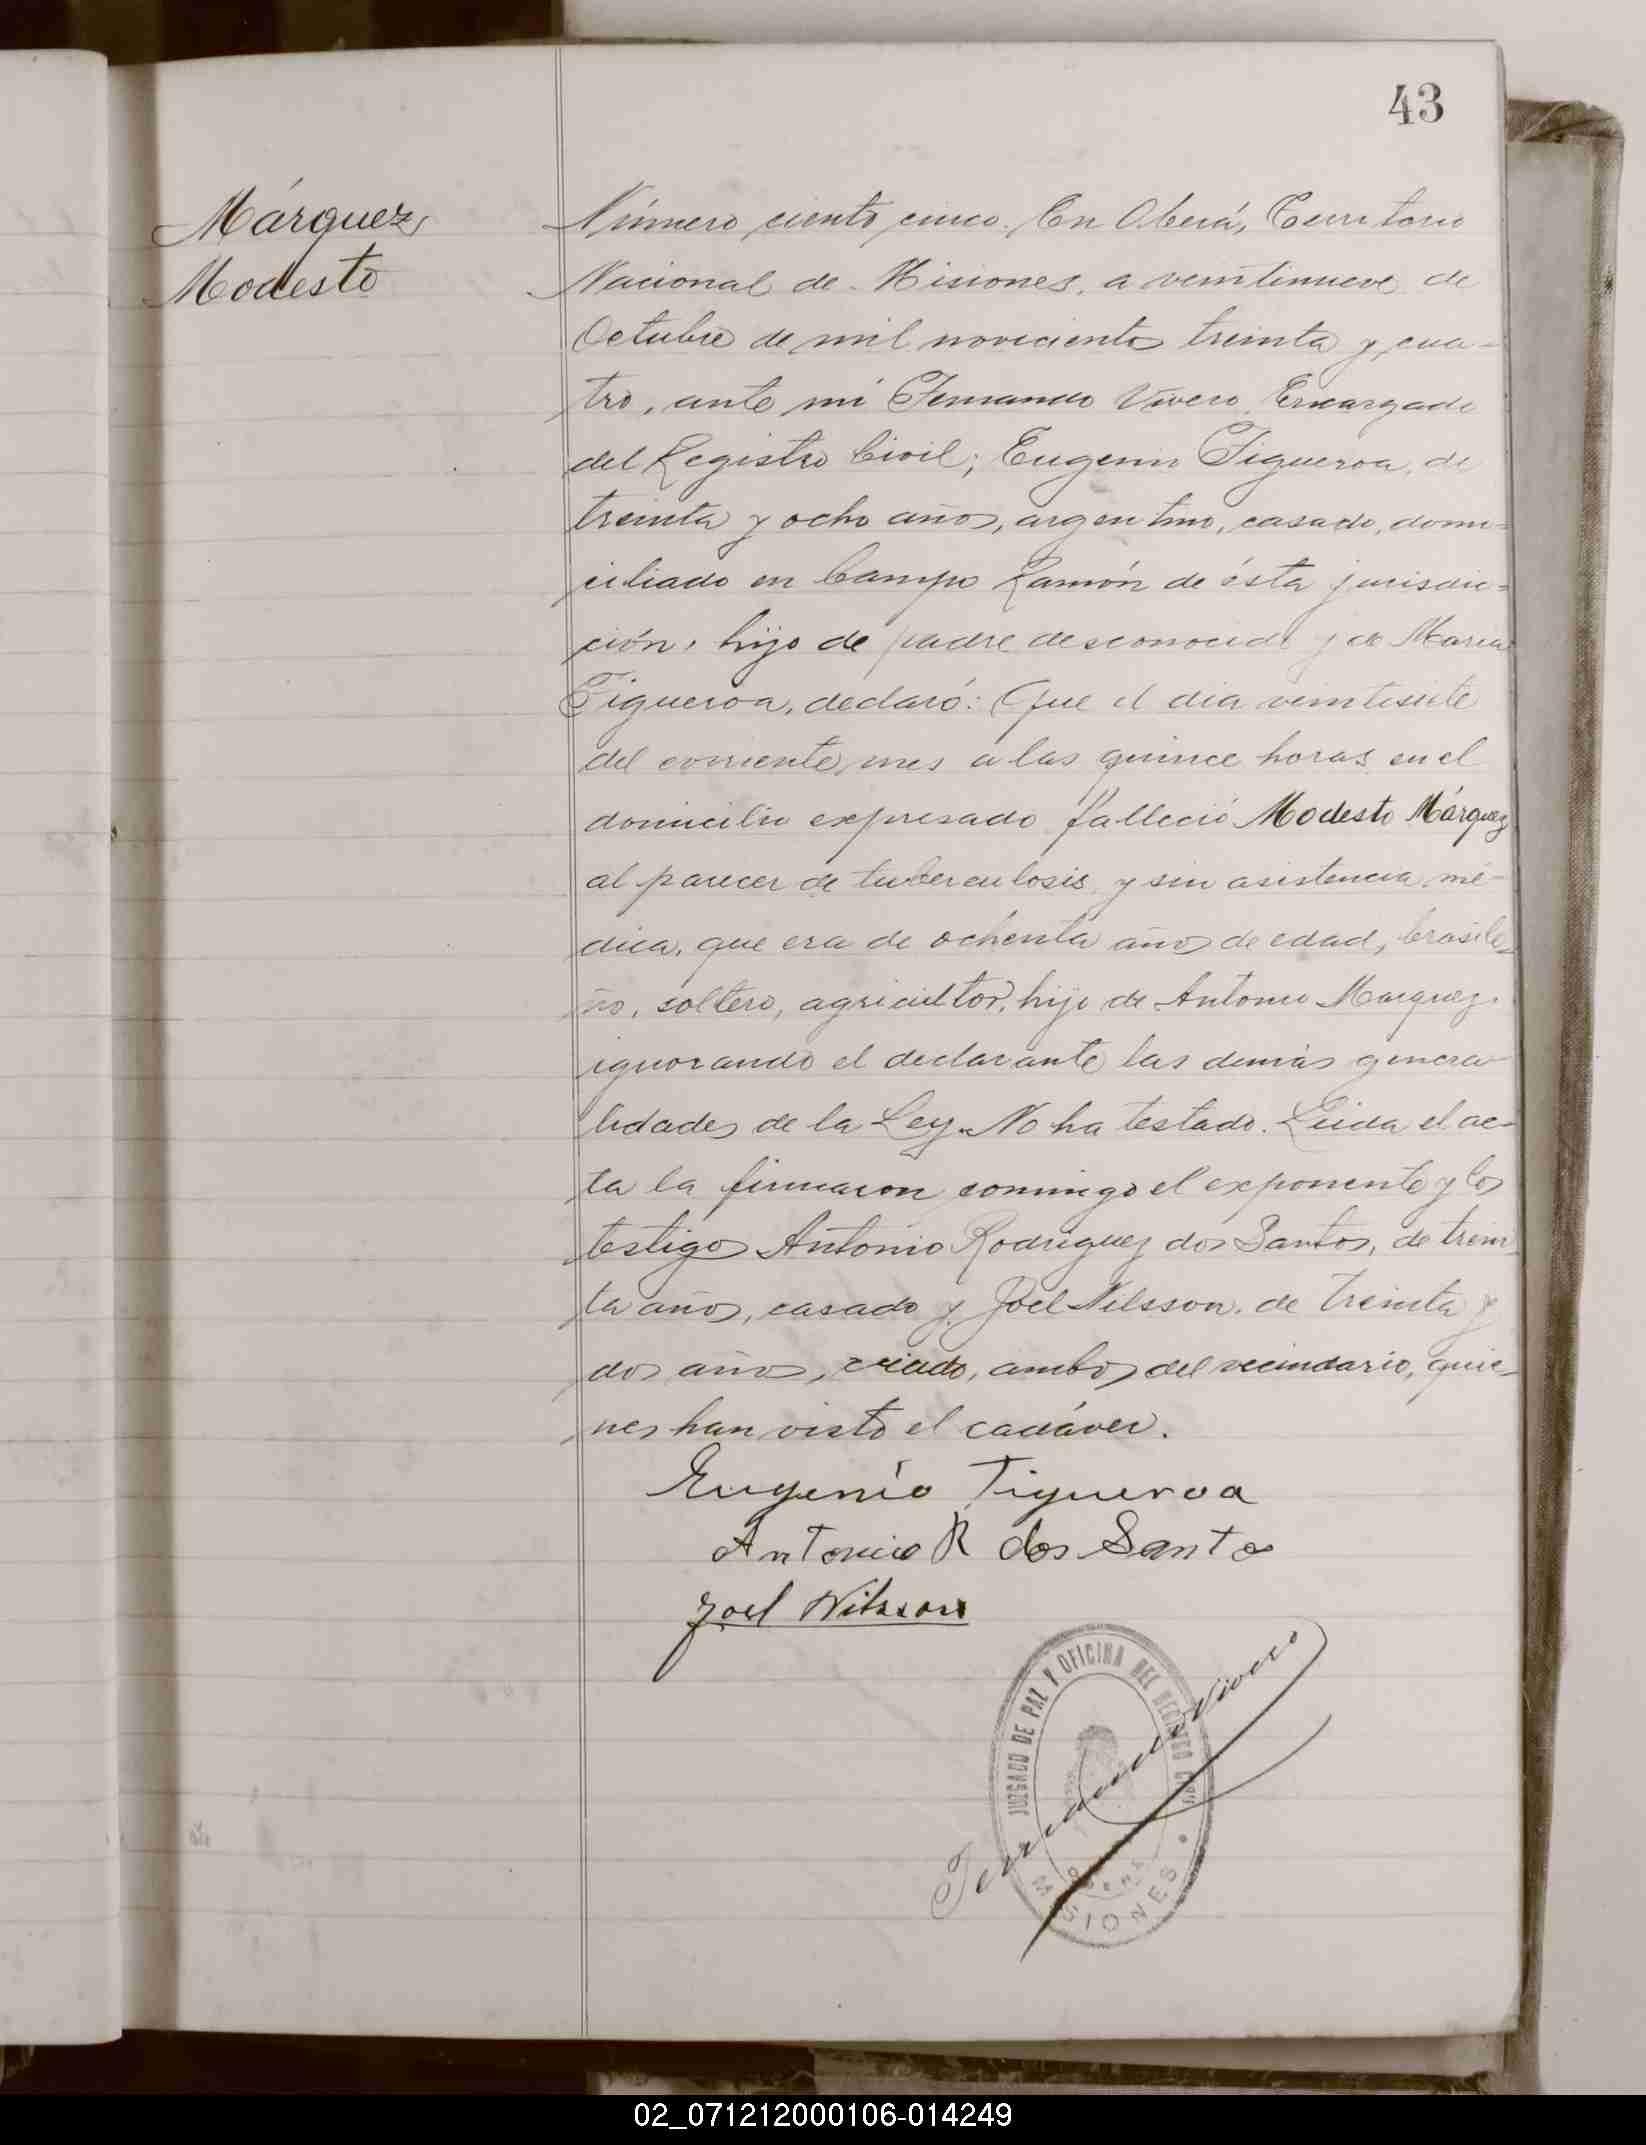 43
Márquez
Modesto
Número ciento cinco. En Oberá, Territorio
Nacional de Misiones, a veintinueve de
Octubre de mil novecientos treinta y cua-
tro, ante mí Fernando Vivero Encargado
del Registro Civil; Eugenio Figueroa, de
treinta y ocho años, argentino, casado, domi-
ciliado en Campo Ramón de ésta jurisdic-
ción, hijo de padre desconocido y de Maria
Figueroa, declaró: Que el dia veintisiete
del corriente mes a las quince horas en el
domicilio expresado falleció Modesto Márquez
al parecer de tuberculosis y sin asistencia mé-
dica, que era de ochenta años de edad, brasile-
ño, soltero, agricultor, hijo de Antonio Marquez.
ignorando el declarante las demás genera-
lidades de la Ley. No ha testado. Leida el ac-
ta la firmaron conmigo el exponente y los
testigos Antonio Rodriguez dos Santos, de trein-
ta años, casado y Joel Nilsson. de treinta y
dos años, viudo, ambos del vecindario, quie-
nes han visto el cadáver.
Eugenio Figueroa
Antonio R dos Santos
Joel Nilsson
Fernando Vivero
JUZGADO DE PAZ Y OFICINA DEL REGISTRO CIVIL
OBERÁ
MISIONES
02_071212000106-014249